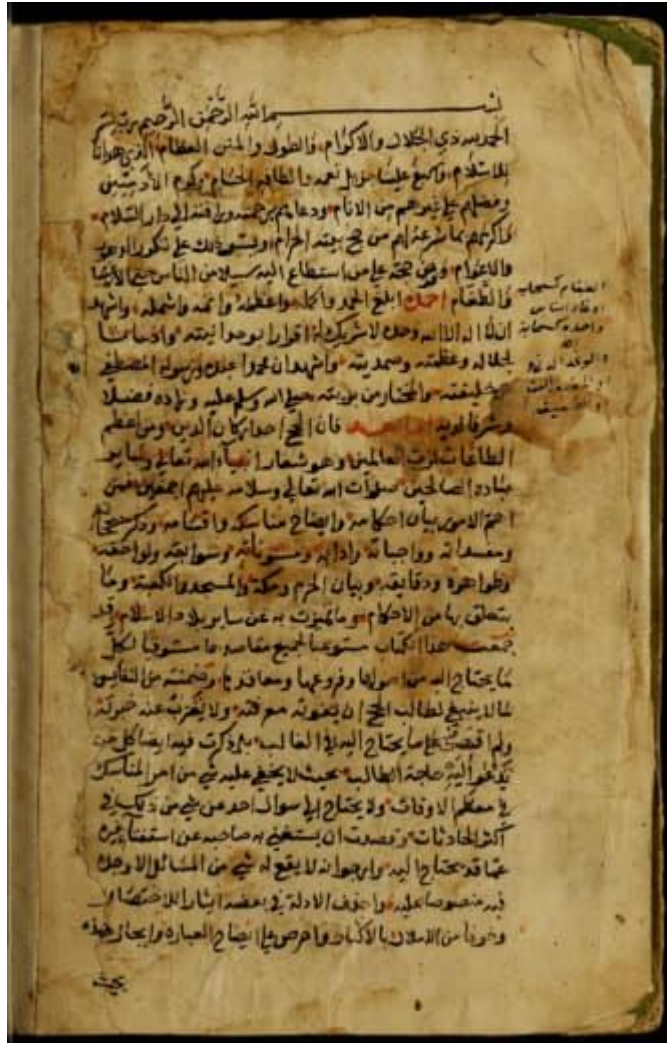 بسم الله الرحمن الرحيم رب يسر
الحمد لله ذي الجلال والاكرام والطول والمنن العظام الذي هدانا
للاسلام واسبغ علينا جزيل نعمه والطافه الجسام وكرم الآدميين
وفضلهم على غيرهم من الانام ودعاهم برحمته ورأفته الى دار السلام
واكرمهم بما شرعه لهم من حج بيته الحرام ويسر ذلك على تكرر الدهور
والاعوام وفرض حجه على من استطاع اليه سبيلا من الناس حتى الاغبيا
والطغام احمده ابلغ الحمد واكمله واعظمه واتمه واشمله واشهد
ان لا اله الا الله وحده لا شريك له اقرارا بوحدانيته واذعانا
لجلاله وعظمته وصمديته واشهد ان محمدا عبده ورسوله المصطفى
من خليقته والمختار من بريته صلى الله وسلم عليه وزاده فضلا
وشرفا لديه اما بعد فان الحج احد اركان الدين ومن اعظم
الطاعات لرب العالمين وهو شعار انبياء الله تعالى وساير
عباده الصالحين صلوات الله تعالى وسلامه عليهم اجمعين فمن
اهم الامور بيان احكامه وايضاح مناسكه واقسامه وذكر مصححاته
ومفسداته وواجباته وادابه ومسنوناته وسوابقه ولواحقه
وظواهره ودقايقه وبيان الحرم ومكة والمسجد والكعبة وما
يتعلق بها من الاحكام وما تميزت به عن ساير بلاد الاسلام وقد
جمعت هذا الكتاب مستوعبا لجميع مقاصدها مستوفيا لكل
ما يحتاج اليه من اصولها وفروعها ومعاقدها وضمنته من النفايس
ما لا ينبغي لطالب الحج ان يفوته معرفته ولا يعزب عنه خبرته
ولم اقتصر على ما يحتاج اليه في الغالب بل ذكرت فيه ايضا كل من
تدعوا اليه حاجة الطالب بحيث لا يخفى عليه شي من امر المناسك
في معظم الاوقات ولا يحتاج الى سوال احد عن شي من ذلك في
اكثر الحادثات وقصدت ان يستغني به صاحبه عن استفتاء غيره
عما قد يحتاج اليه وارجوا انه لا يقع له شي من المسائل الا وجده
فيه منصوصا عليه واحذف الادلة في بعضه ايثارا للاختصار
وخوفا من الاملال بالاكثار واحرص على ايضاح العبارة وايجازها
بحيث
الطغام كسحاب
اوغاد الناس
واحده كسحابة